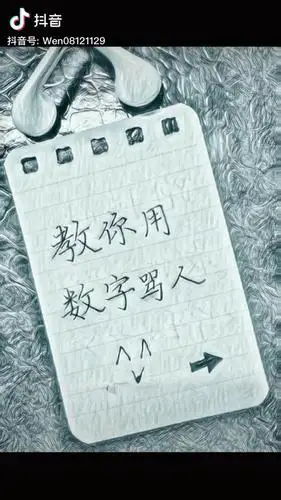 抖音
抖音号: Wen08121129
教你用
数字骂人